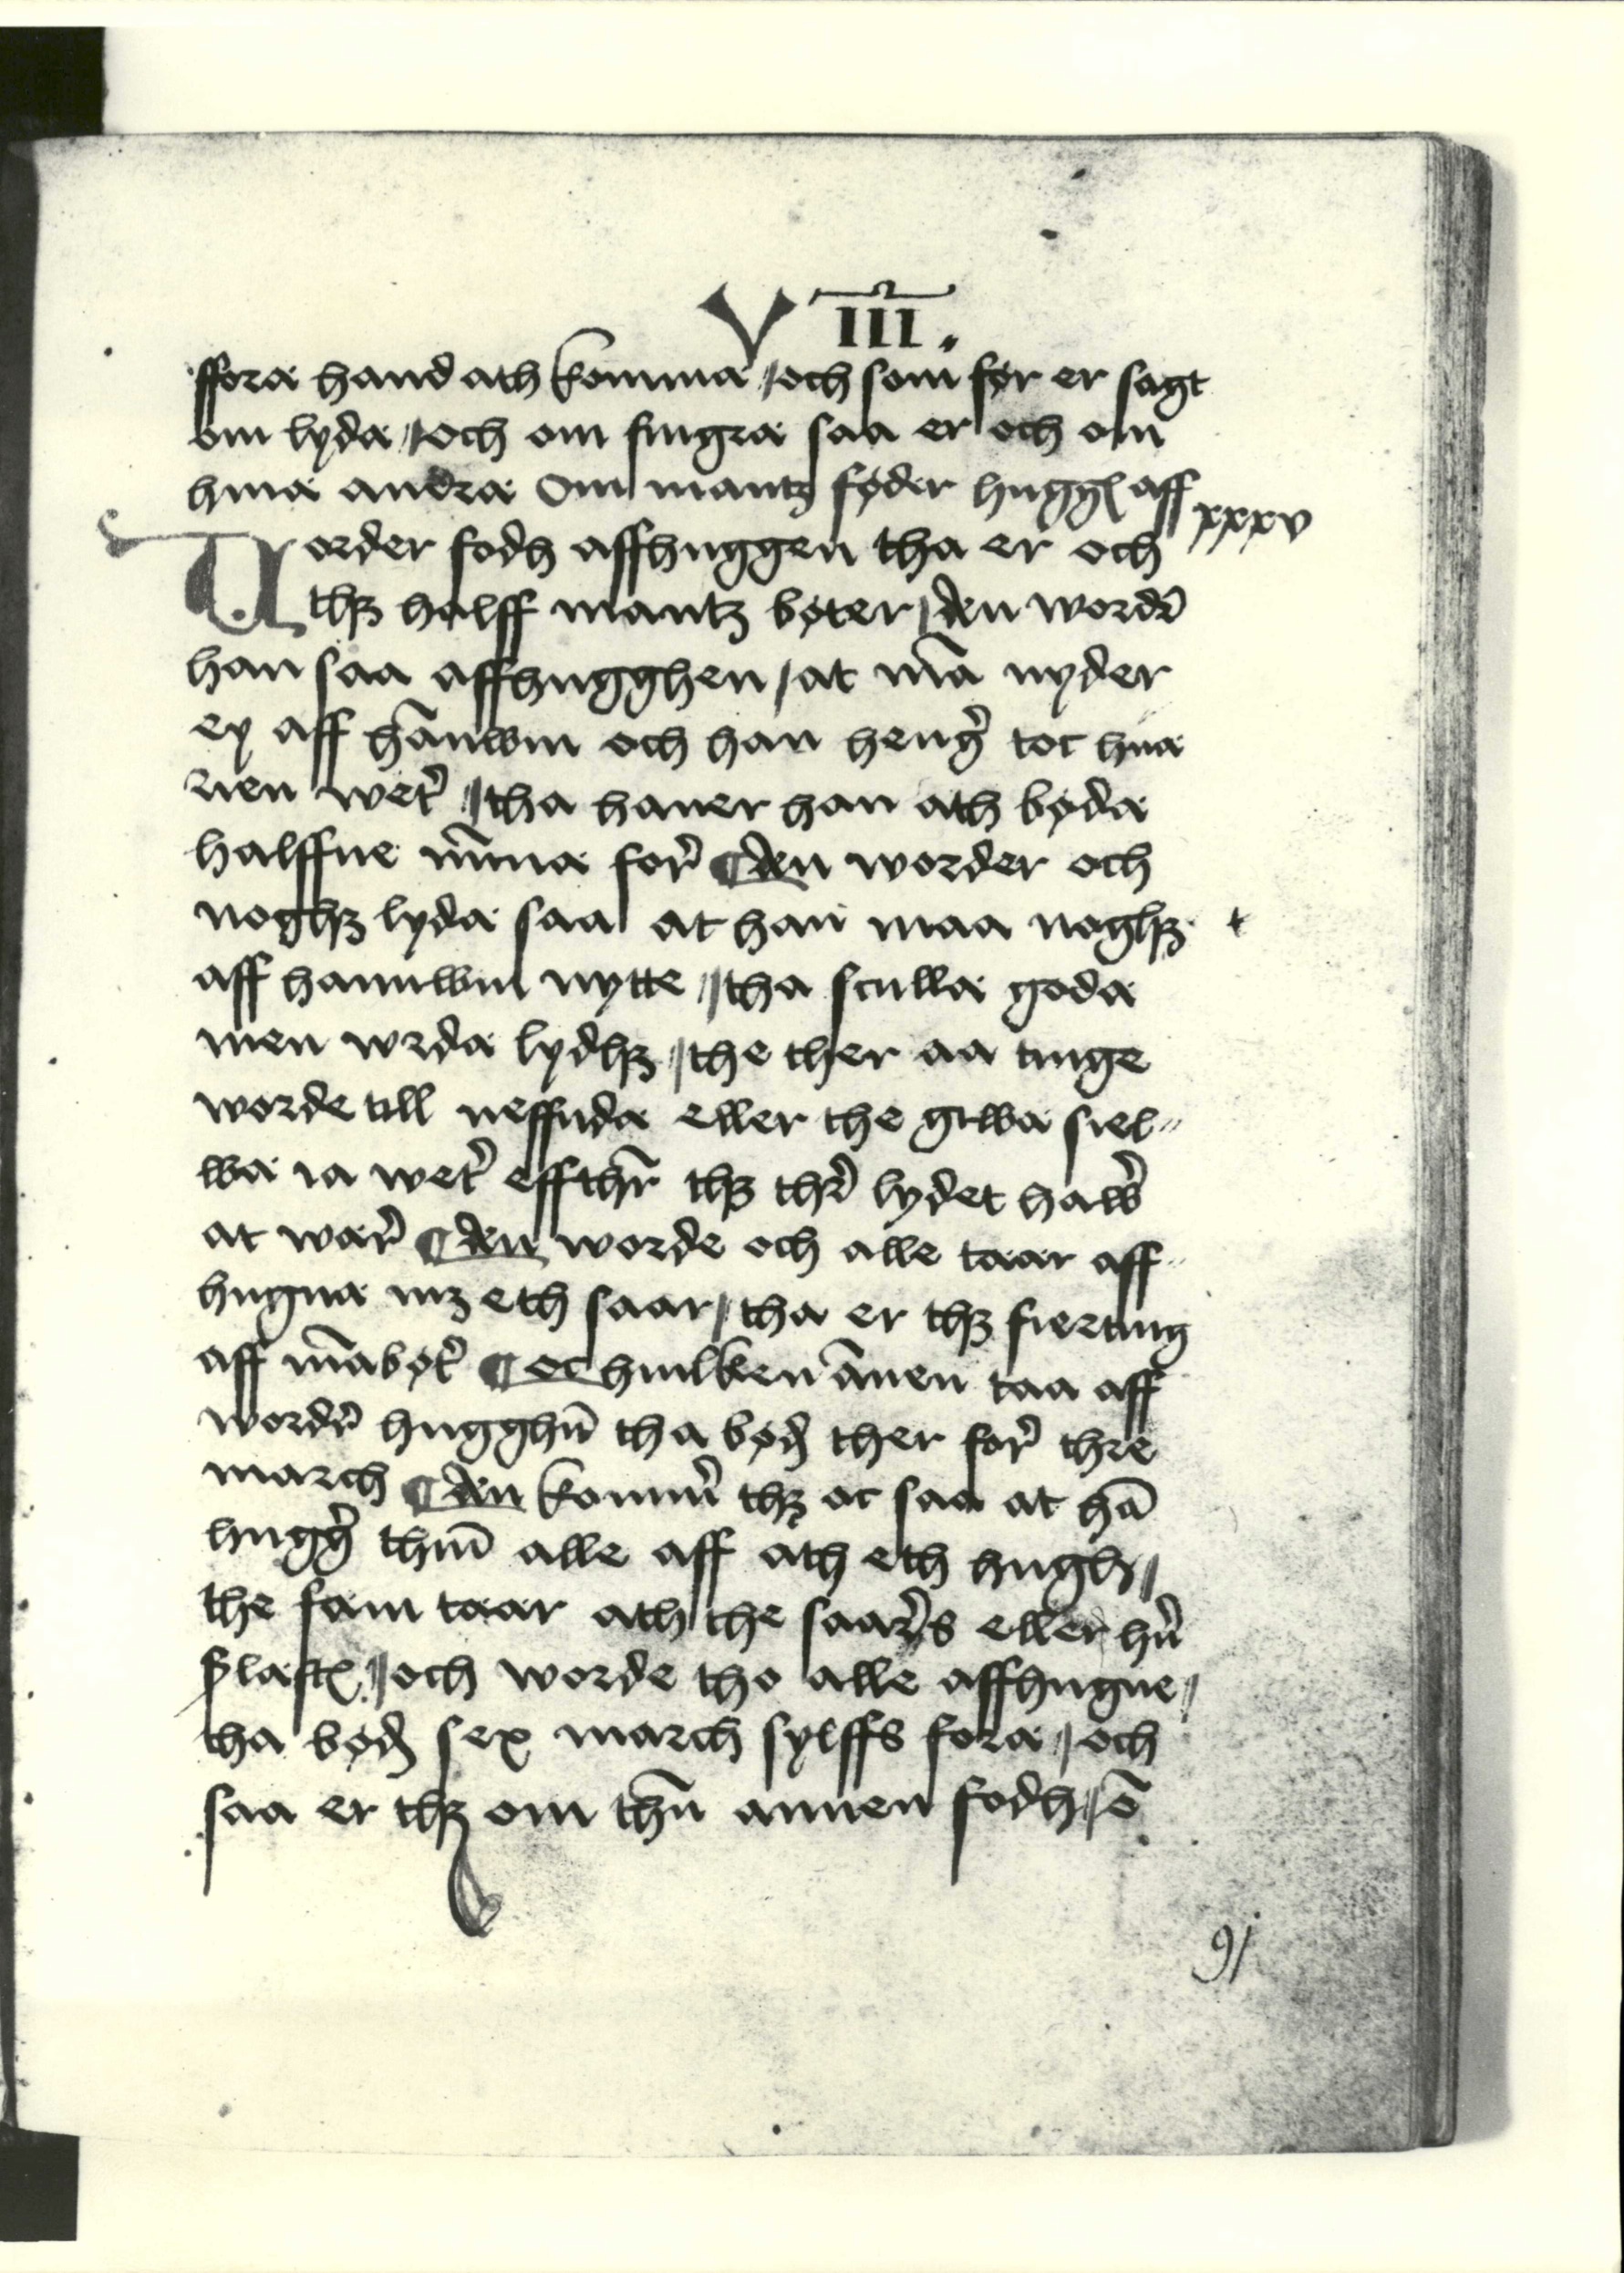 V III.
ffora hand ath komma / och som før er sagt
om lyda / och om fingra saa er och om
hina andra Om mantz føder huggſ aff xxxv
Worder fodh affhuggen tha er och
thꝫ halff mantz bøter / den wordꝛ̛
han saa affhugghen / at mā nyder
ey aff hānwm och han heng̛ toc hua
rien wet̛ / tha hauer han ath bøda
halffue m̄na for̛ ¶ den worder och
noghꝫ lyda saa at han maa noghꝫ t
aff hannwm nytte / tha sculla goda
men wrda lydhꝫ / the ther aa tinge
worde till neffnda eller the giwa siel〃
wa ia wet̛ effth̄r thꝫ thr̛ lydet haw̛
at war̛ ¶ den worde och alle taar aff〃
hugna mꝫ eth saar / tha er thꝫ fierting
aff mābøt̛ ¶ oc huilken ānen taa aff
word̛ hugghn̄ tha bødꝭ ther for̛ thre
march ¶ den komm̛ thꝫ oc saa at hā
hugg̛ thm̄ alle aff ath eth hugh /
the fäm taar ath the saar̛s eller hn̛
/ och worde tho alle affhugne /
tha bødꝭ sex march sylffs fora / och
saa er thꝫ om thn̄ annen fodh / ō
91